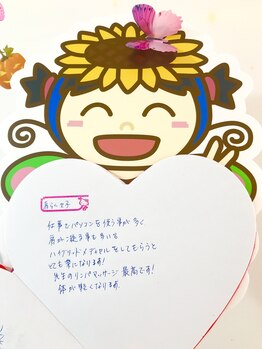 仕事でパソコンを使う事が多く
肩がこる事も多いと
ハイブリッドメディセルをしてもらうと
とても楽になります!
先生のリンパマッサージ最高です!
体が軽くなります